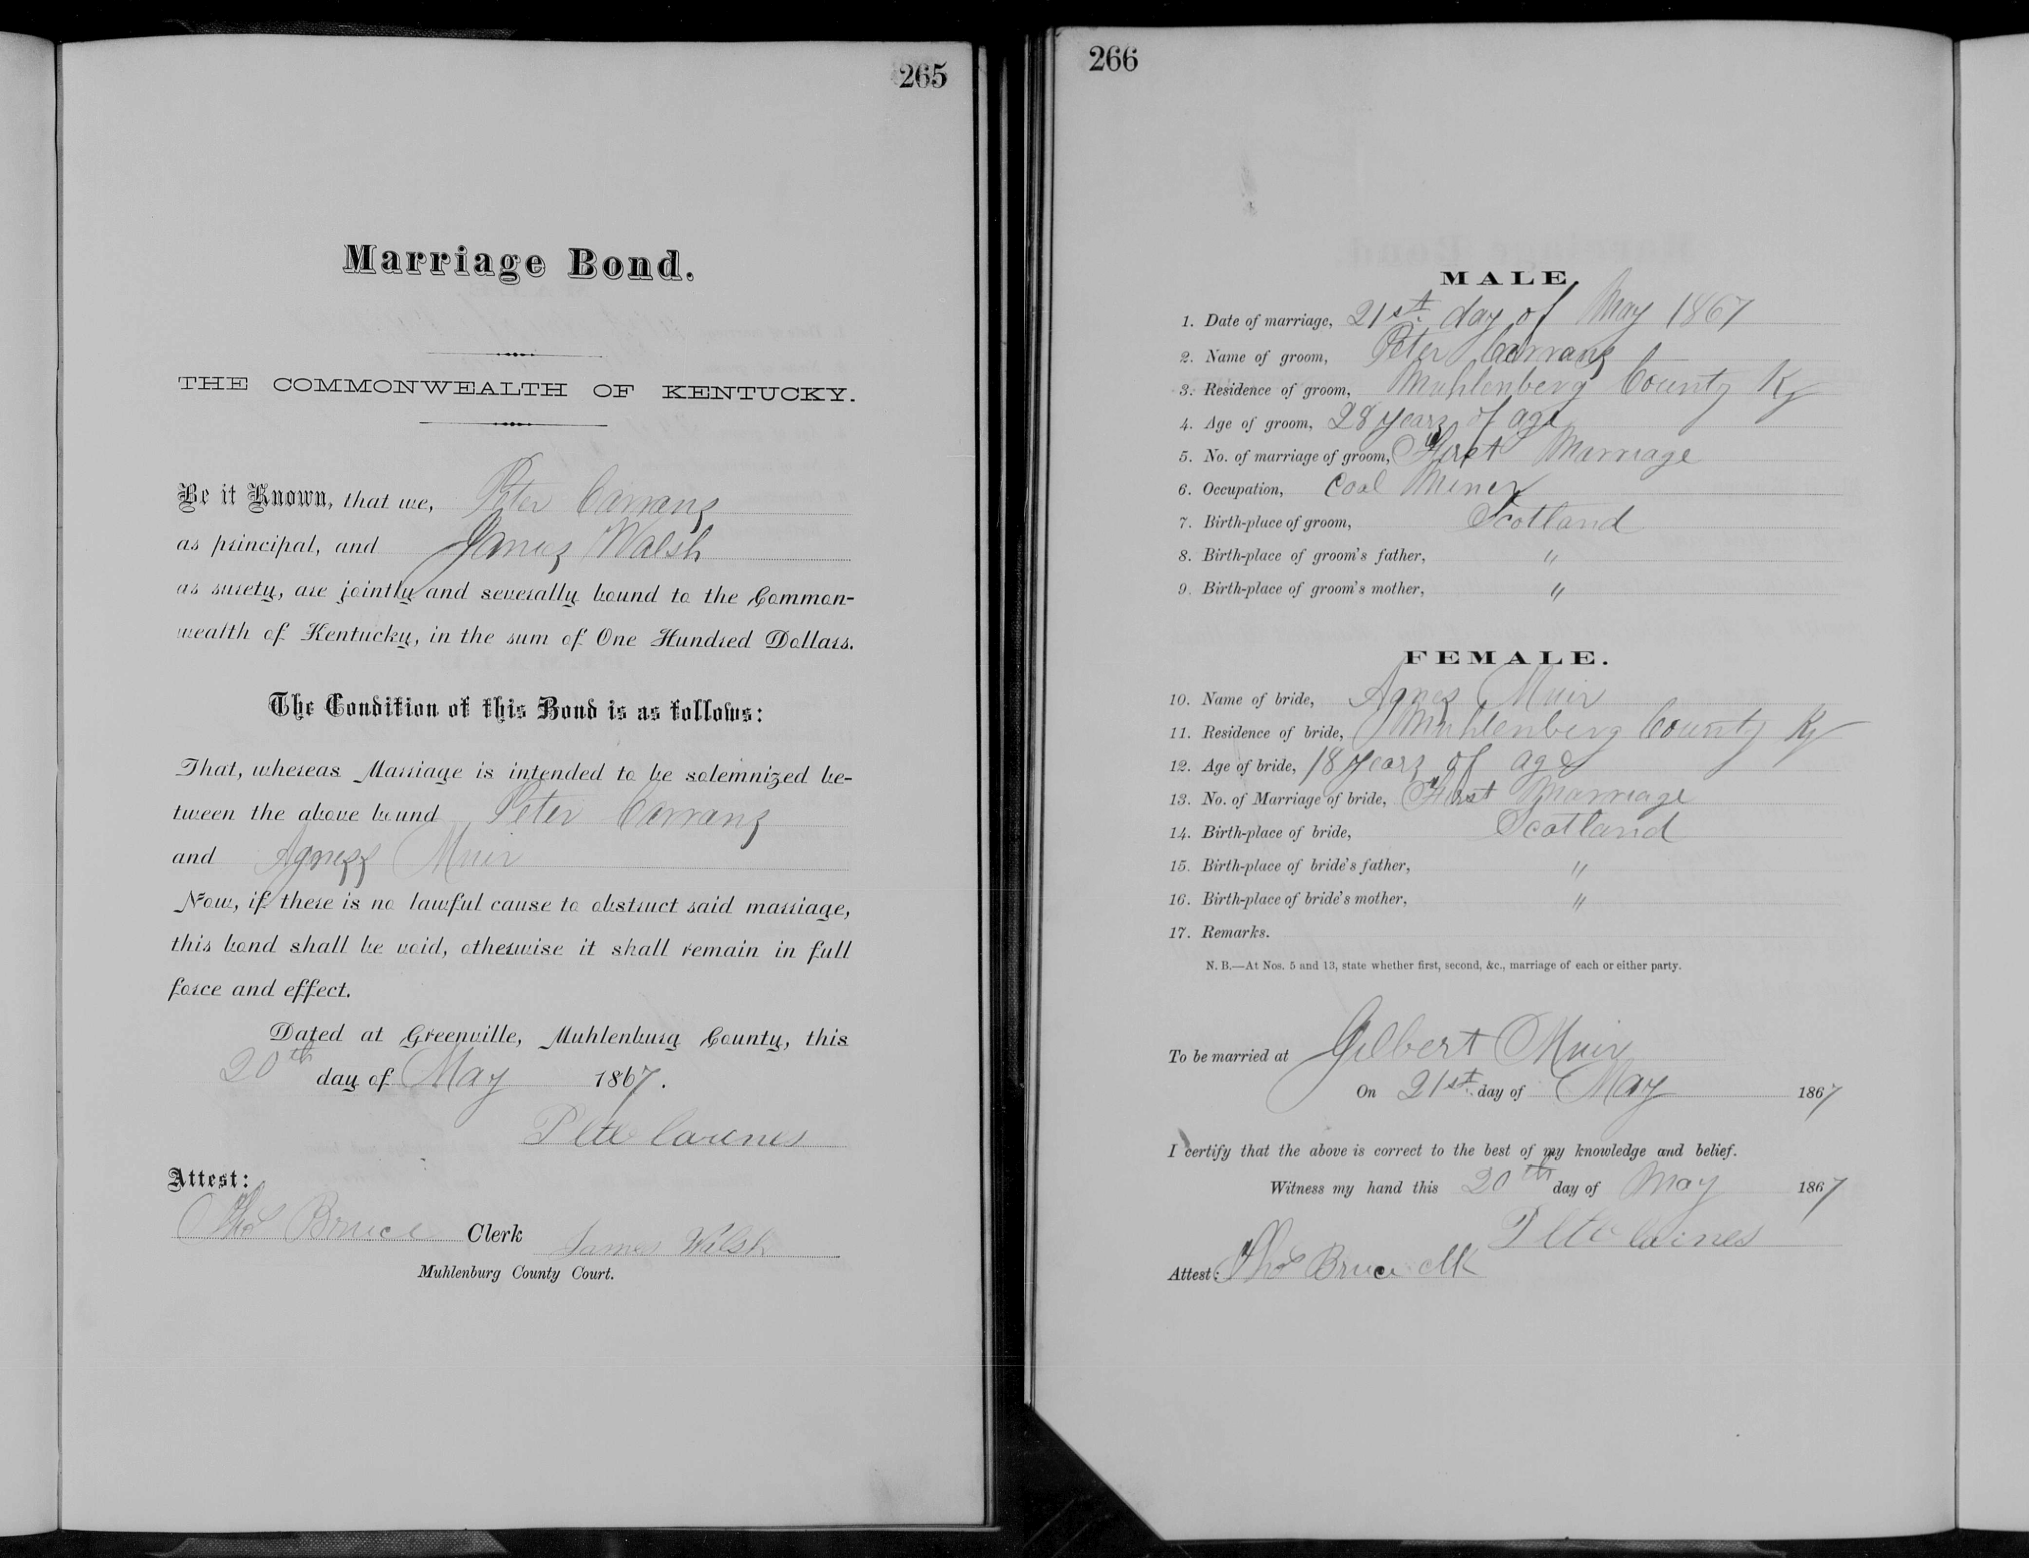 265
Marriage Bond.
THE COMMONWEALTH OF KENTUCKY.
Be it Known, that we, Peter Carrans
as principal, and James Walsh
as surety, are jointly and severally bound to the Common-
wealth of Kentucky, in the sum of One Hundred Dollars.
The Condition of this Bond is as follows:
That, whereas Marriage is intended to be solemnized be-
tween the above bound Peter Carrans
and Agness Muir
Now, if there is no lawful cause to obstruct said marriage,
this bond shall be void, otherwise it shall remain in full
force and effect.
Dated at Greenville, Muhlenburg County, this
20th day of May 1867.
Attest:
Thos Bruce Clerk James Walsh
Muhlenburg County Court.
266
MALE.
1. Date of marriage, 21st day of May 1867
2. Name of groom, Peter Carrans
3. Residence of groom, Muhlenberg County Ky
4. Age of groom, 28 years of age
5. No. of marriage of groom, First Marriage
6. Occupation, Coal Miner
7. Birth-place of groom, Scotland
8. Birth-place of groom's father, "
9. Birth-place of groom's mother, "
FEMALE.
10. Name of bride, Agnes Muir
11. Residence of bride, Muhlenberg County Ky
12. Age of bride, 18 years of age
13. No. of Marriage of bride, First Marriage
14. Birth-place of bride, Scotland
15. Birth-place of bride's father, "
16. Birth-place of bride's mother, "
17. Remarks.
N. B.—At Nos. 5 and 13, state whether first, second, &c., marriage of each or either party.
To be married at Gilbert Muir
On 21st day of May 1867
I certify that the above is correct to the best of my knowledge and belief.
Witness my hand this 20th day of May 1867
Attest: Thos Bruce clk